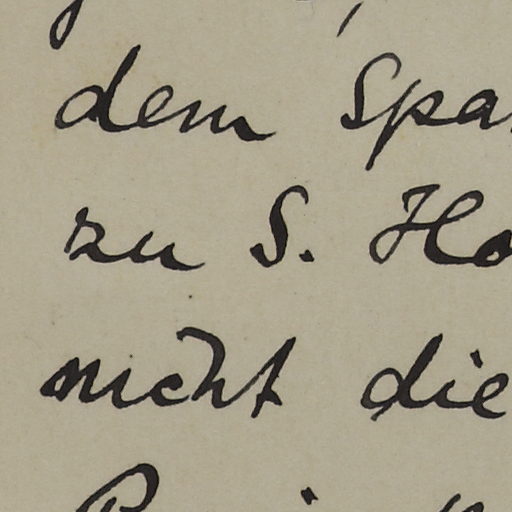 dem Spa
zu S. Ho
nicht die